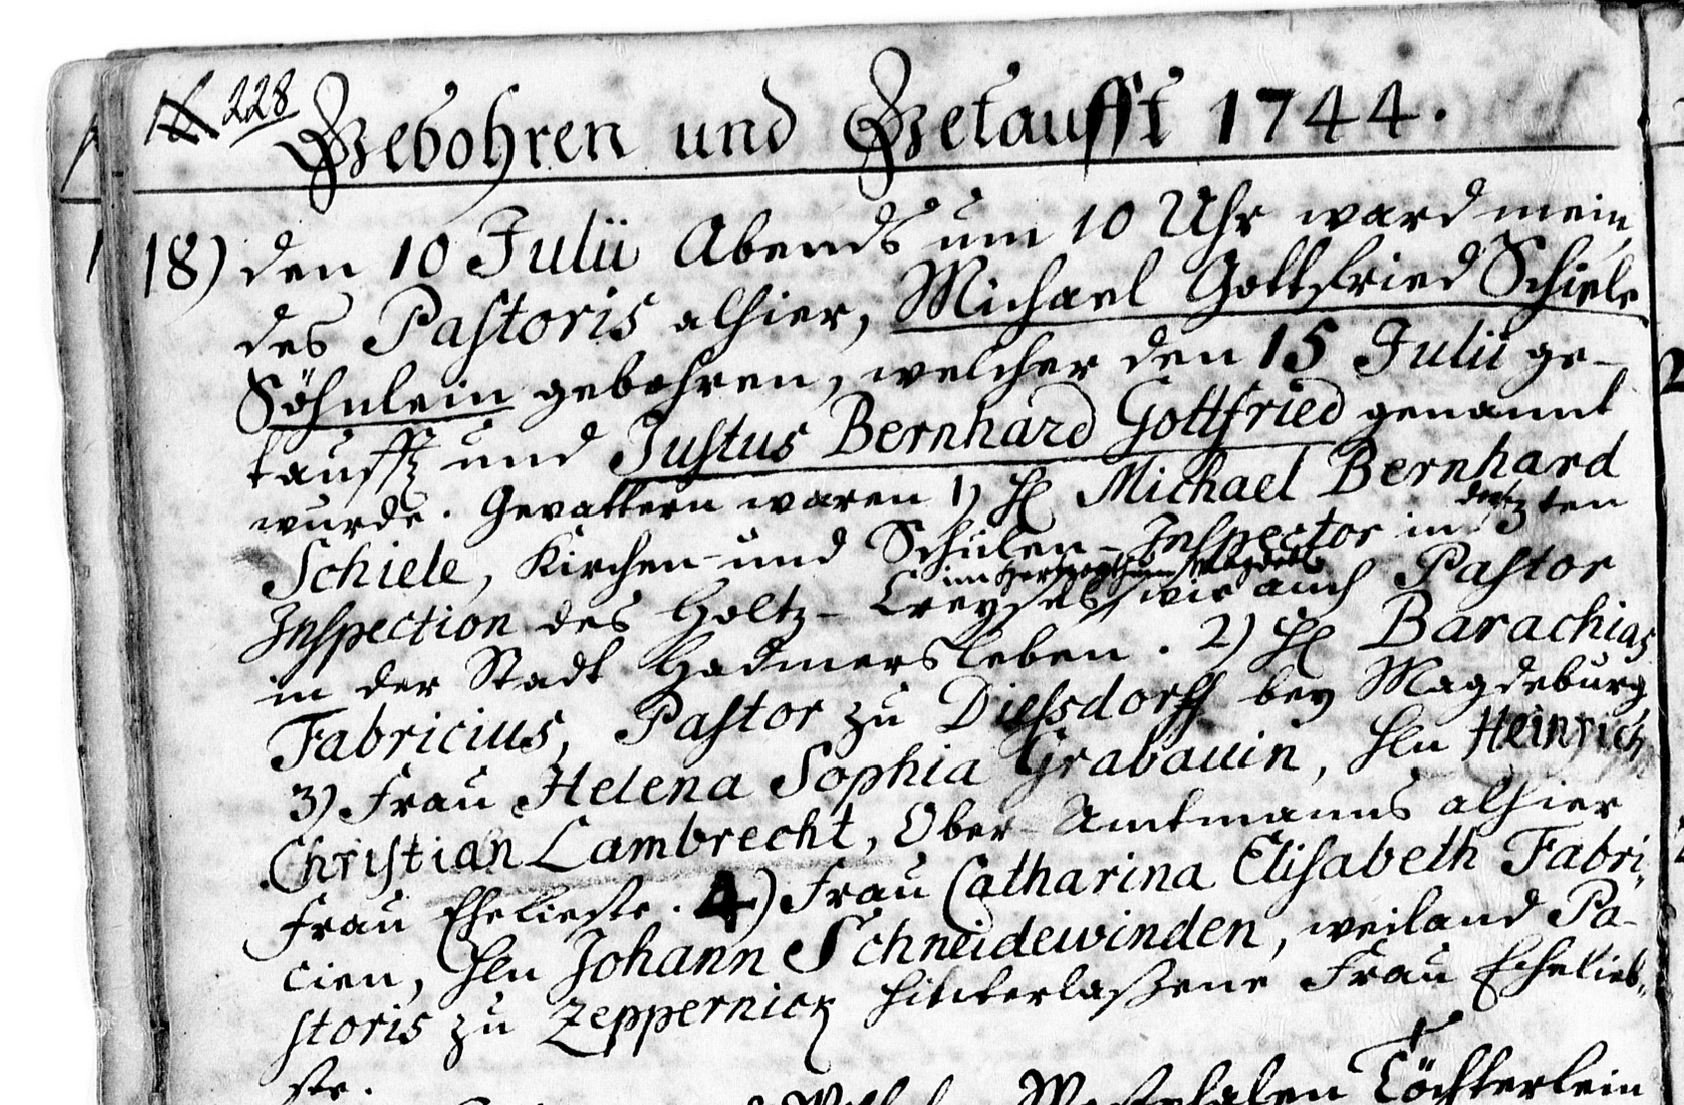 228
Gebohren und Getaufft 1744.
18) den 10 Julii Abends um 10 Uhr ward mein,
des Pastoris alhier, Michael Gottfried Schiele
Söhnlein gebohren, welcher den 15 Julii ge-
taufft und Justus Bernhard Gottfried genannt
wurde. Gevattern waren 1) H Michael Bernhard
Schiele, Kirchen- und Schulen-Inspector in der 3ten
Inspection des Holtz-Creyses im Herzogthum Magdeb wie auch Pastor
in der Stadt Hadmersleben. 2) H Barachias
Fabricius, Pastor zu Diesdorff bey Magdeburg,
3) Frau Helena Sophia Grabauin, Hln Heinrich
Christian Lambrecht, Ober-Amtmanns alhier
Frau Eheliebste. 4) Frau Catharina Elisabeth Fabri-
cien, Hln Johann Schneidewinden, weiland Pa-
storis zu Zeppernick hinterlaßene Frau Ehelieb-
ste.
Westphalen Töchterlein